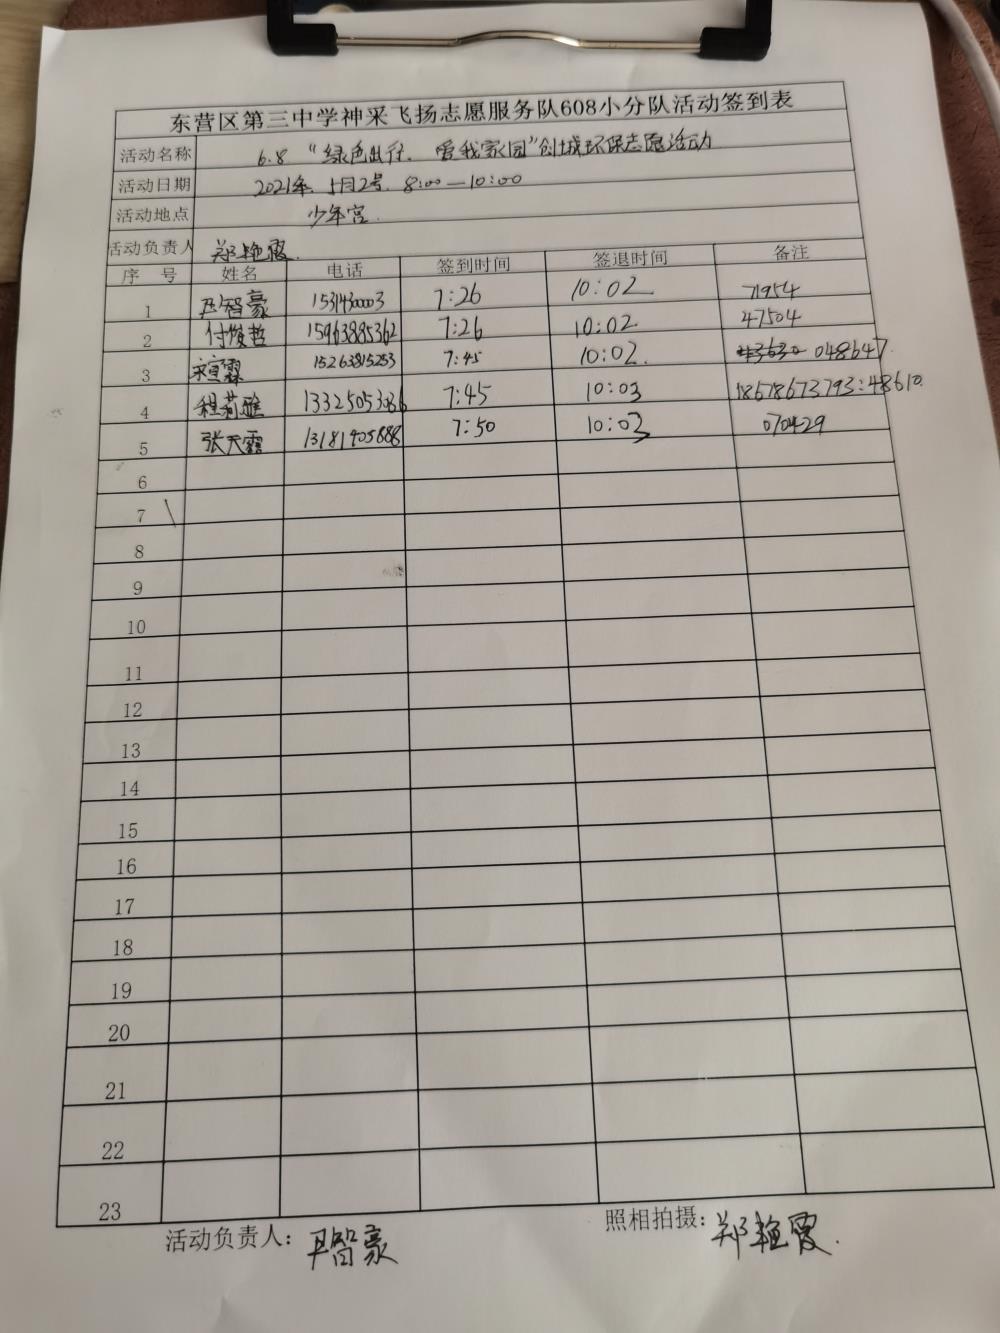 东营区第三中学神采飞扬志愿服务队608小分队活动签到表
活动名称 6.8 “绿色出行、爱我家园”创城环保志愿活动
活动日期 2021年 5月2号 8:00—10:00
活动地点 少年宫
活动负责人 郑艳霞
序 号 姓名 电话 签到时间 签退时间 备注
1 尹智豪 15314300003 7:26 10:02 71954
2 付俊哲 15963885362 7:26 10:02 47504
3 15263815253 7:45 10:02 048647
4 程莉雅 7:45 10:03 18678673793:48610
5 张天霩 13181905888 7:50 10:03 070429
6
7
8
9
10
11
12
13
14
15
16
17
18
19
20
21
22
23
活动负责人: 尹智豪 照相拍摄: 郑艳霞